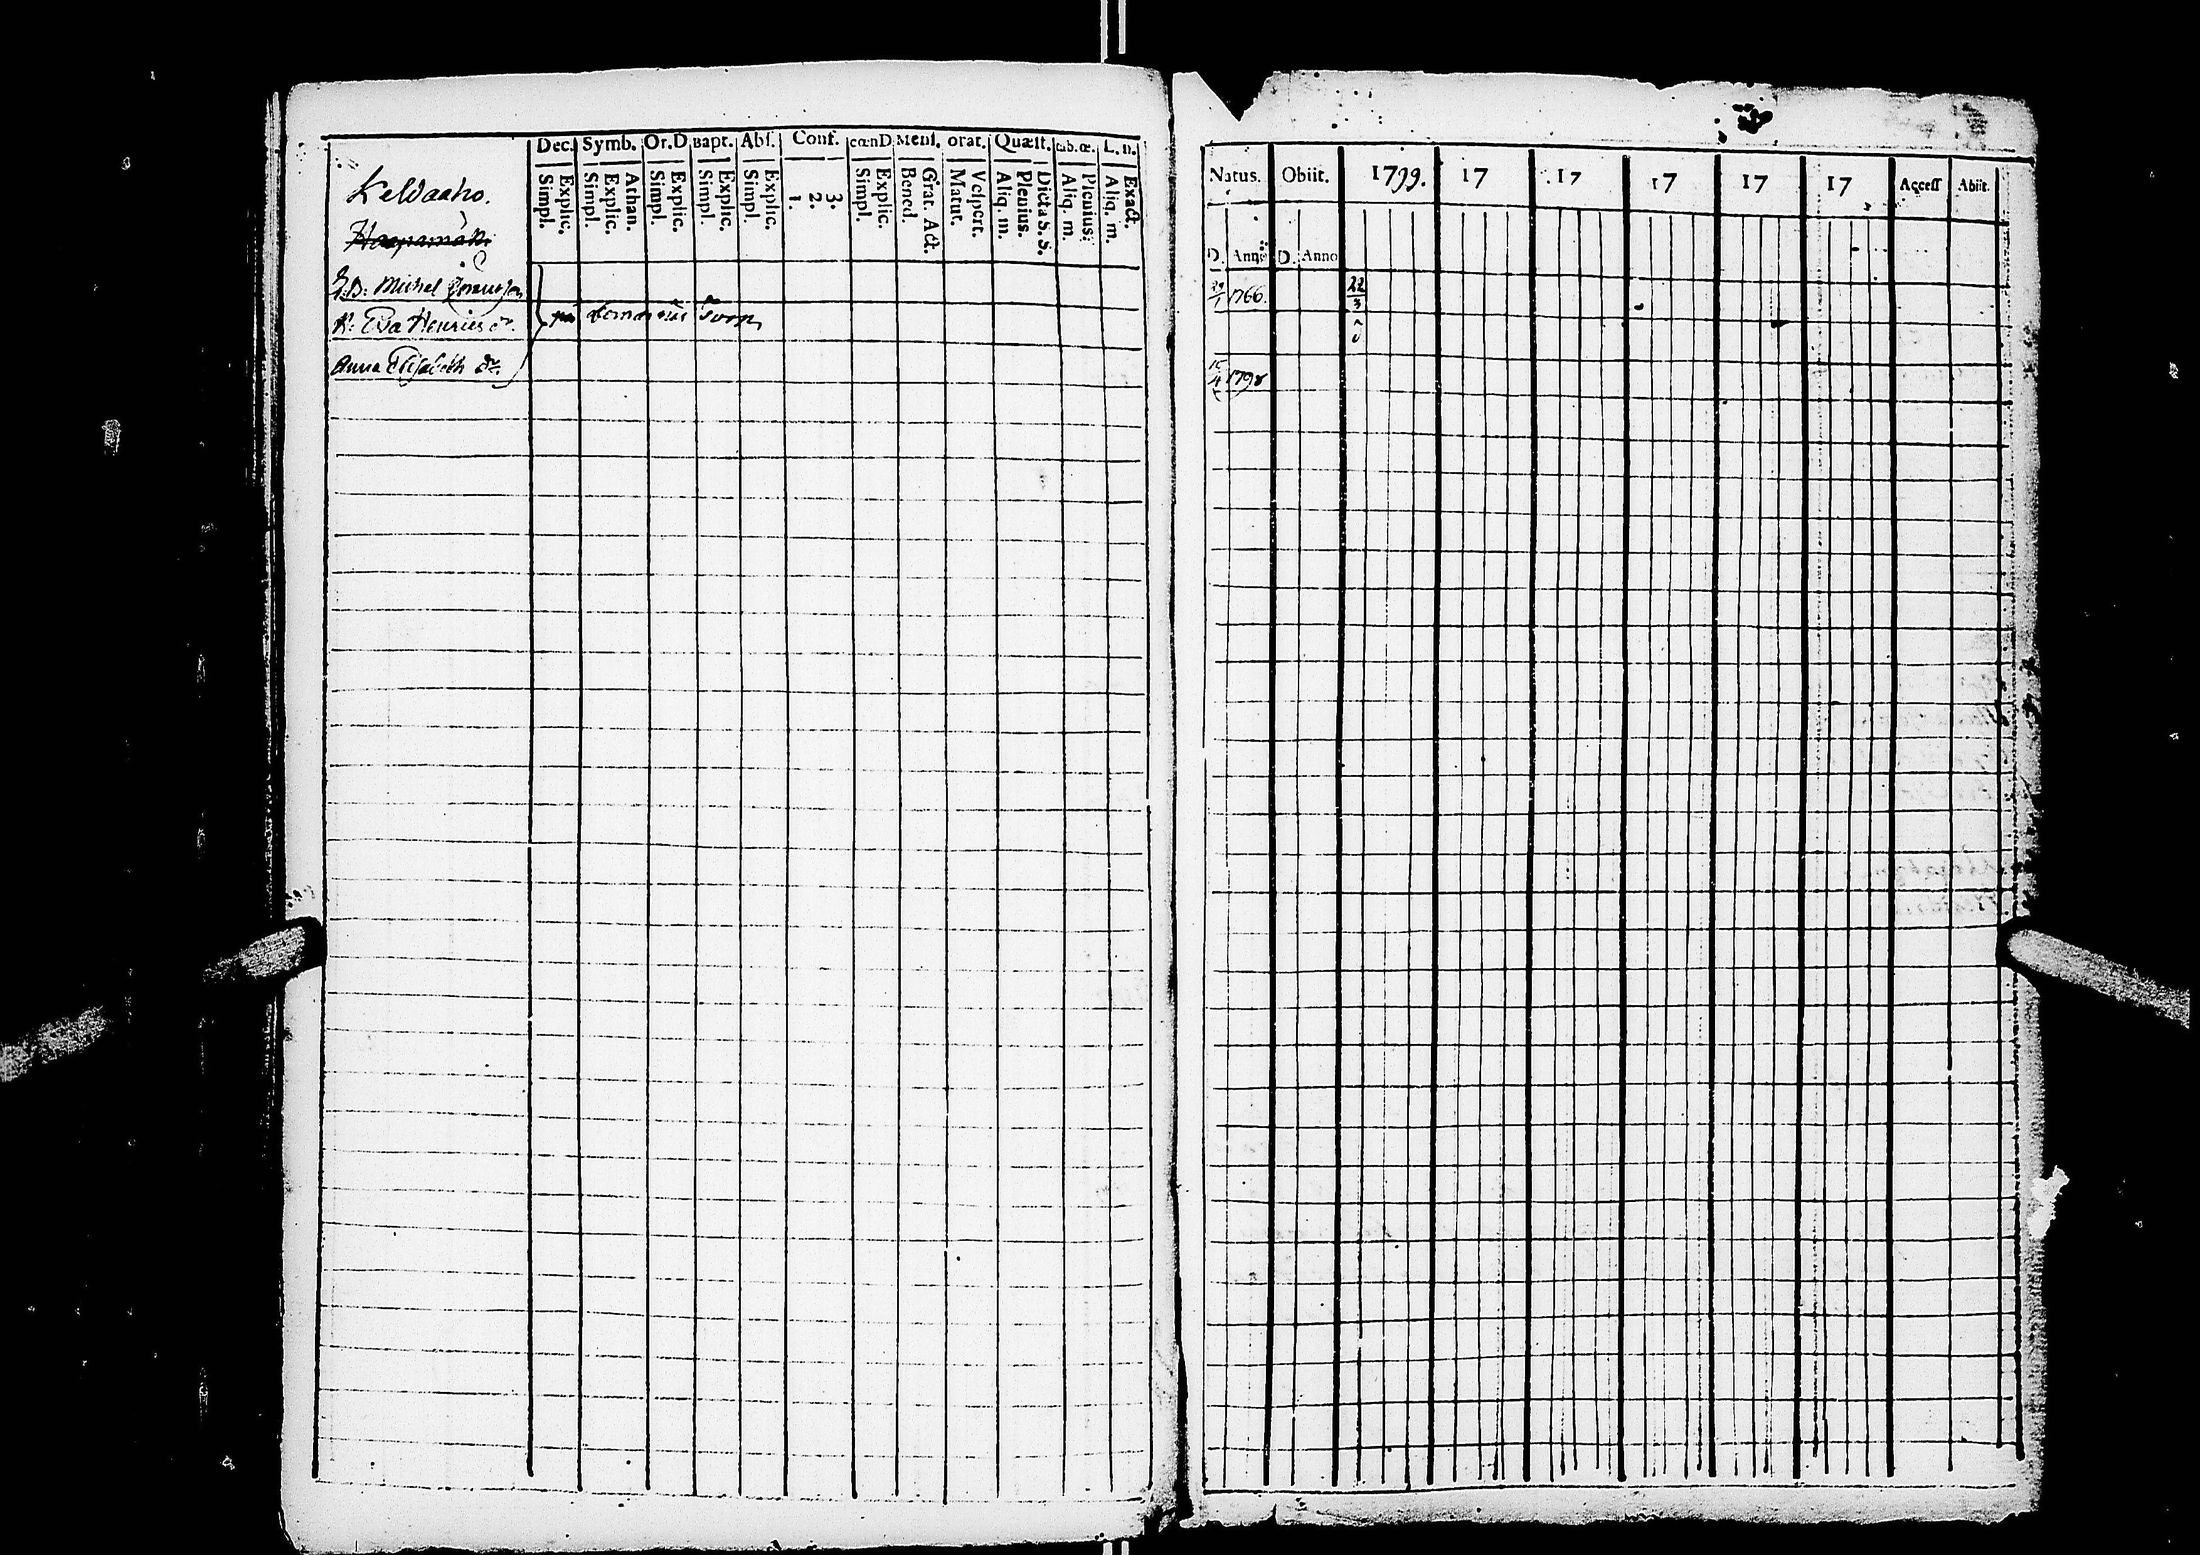 Dec. Symb. Or.D Bapt. Abſ. Conf. cœnD Menſ. orat. Quæſt. tab.œ. L. n.
Simpl. Explic. Simpl. Explic. Athan. Simpl. Explic. Simpl. Explic. Simpl. Explic. 1. 2. 3. Simpl. Explic. Bened. Grat. Act. Matut. Veſpert. Aliq. m. Plenius. Dicta S. S. Aliq. m. Plenius. Aliq. m. Exact.
Keldaaho.
Haapamäki
Michel
H: Eva Henricsdr.
Anna Elisabeth dr.
på
Natus. Obiit. 1799. 17 17 17 17 17 Acceſſ Abiit.
D. Anno D. Anno
29/1 1766. 22/3
1798